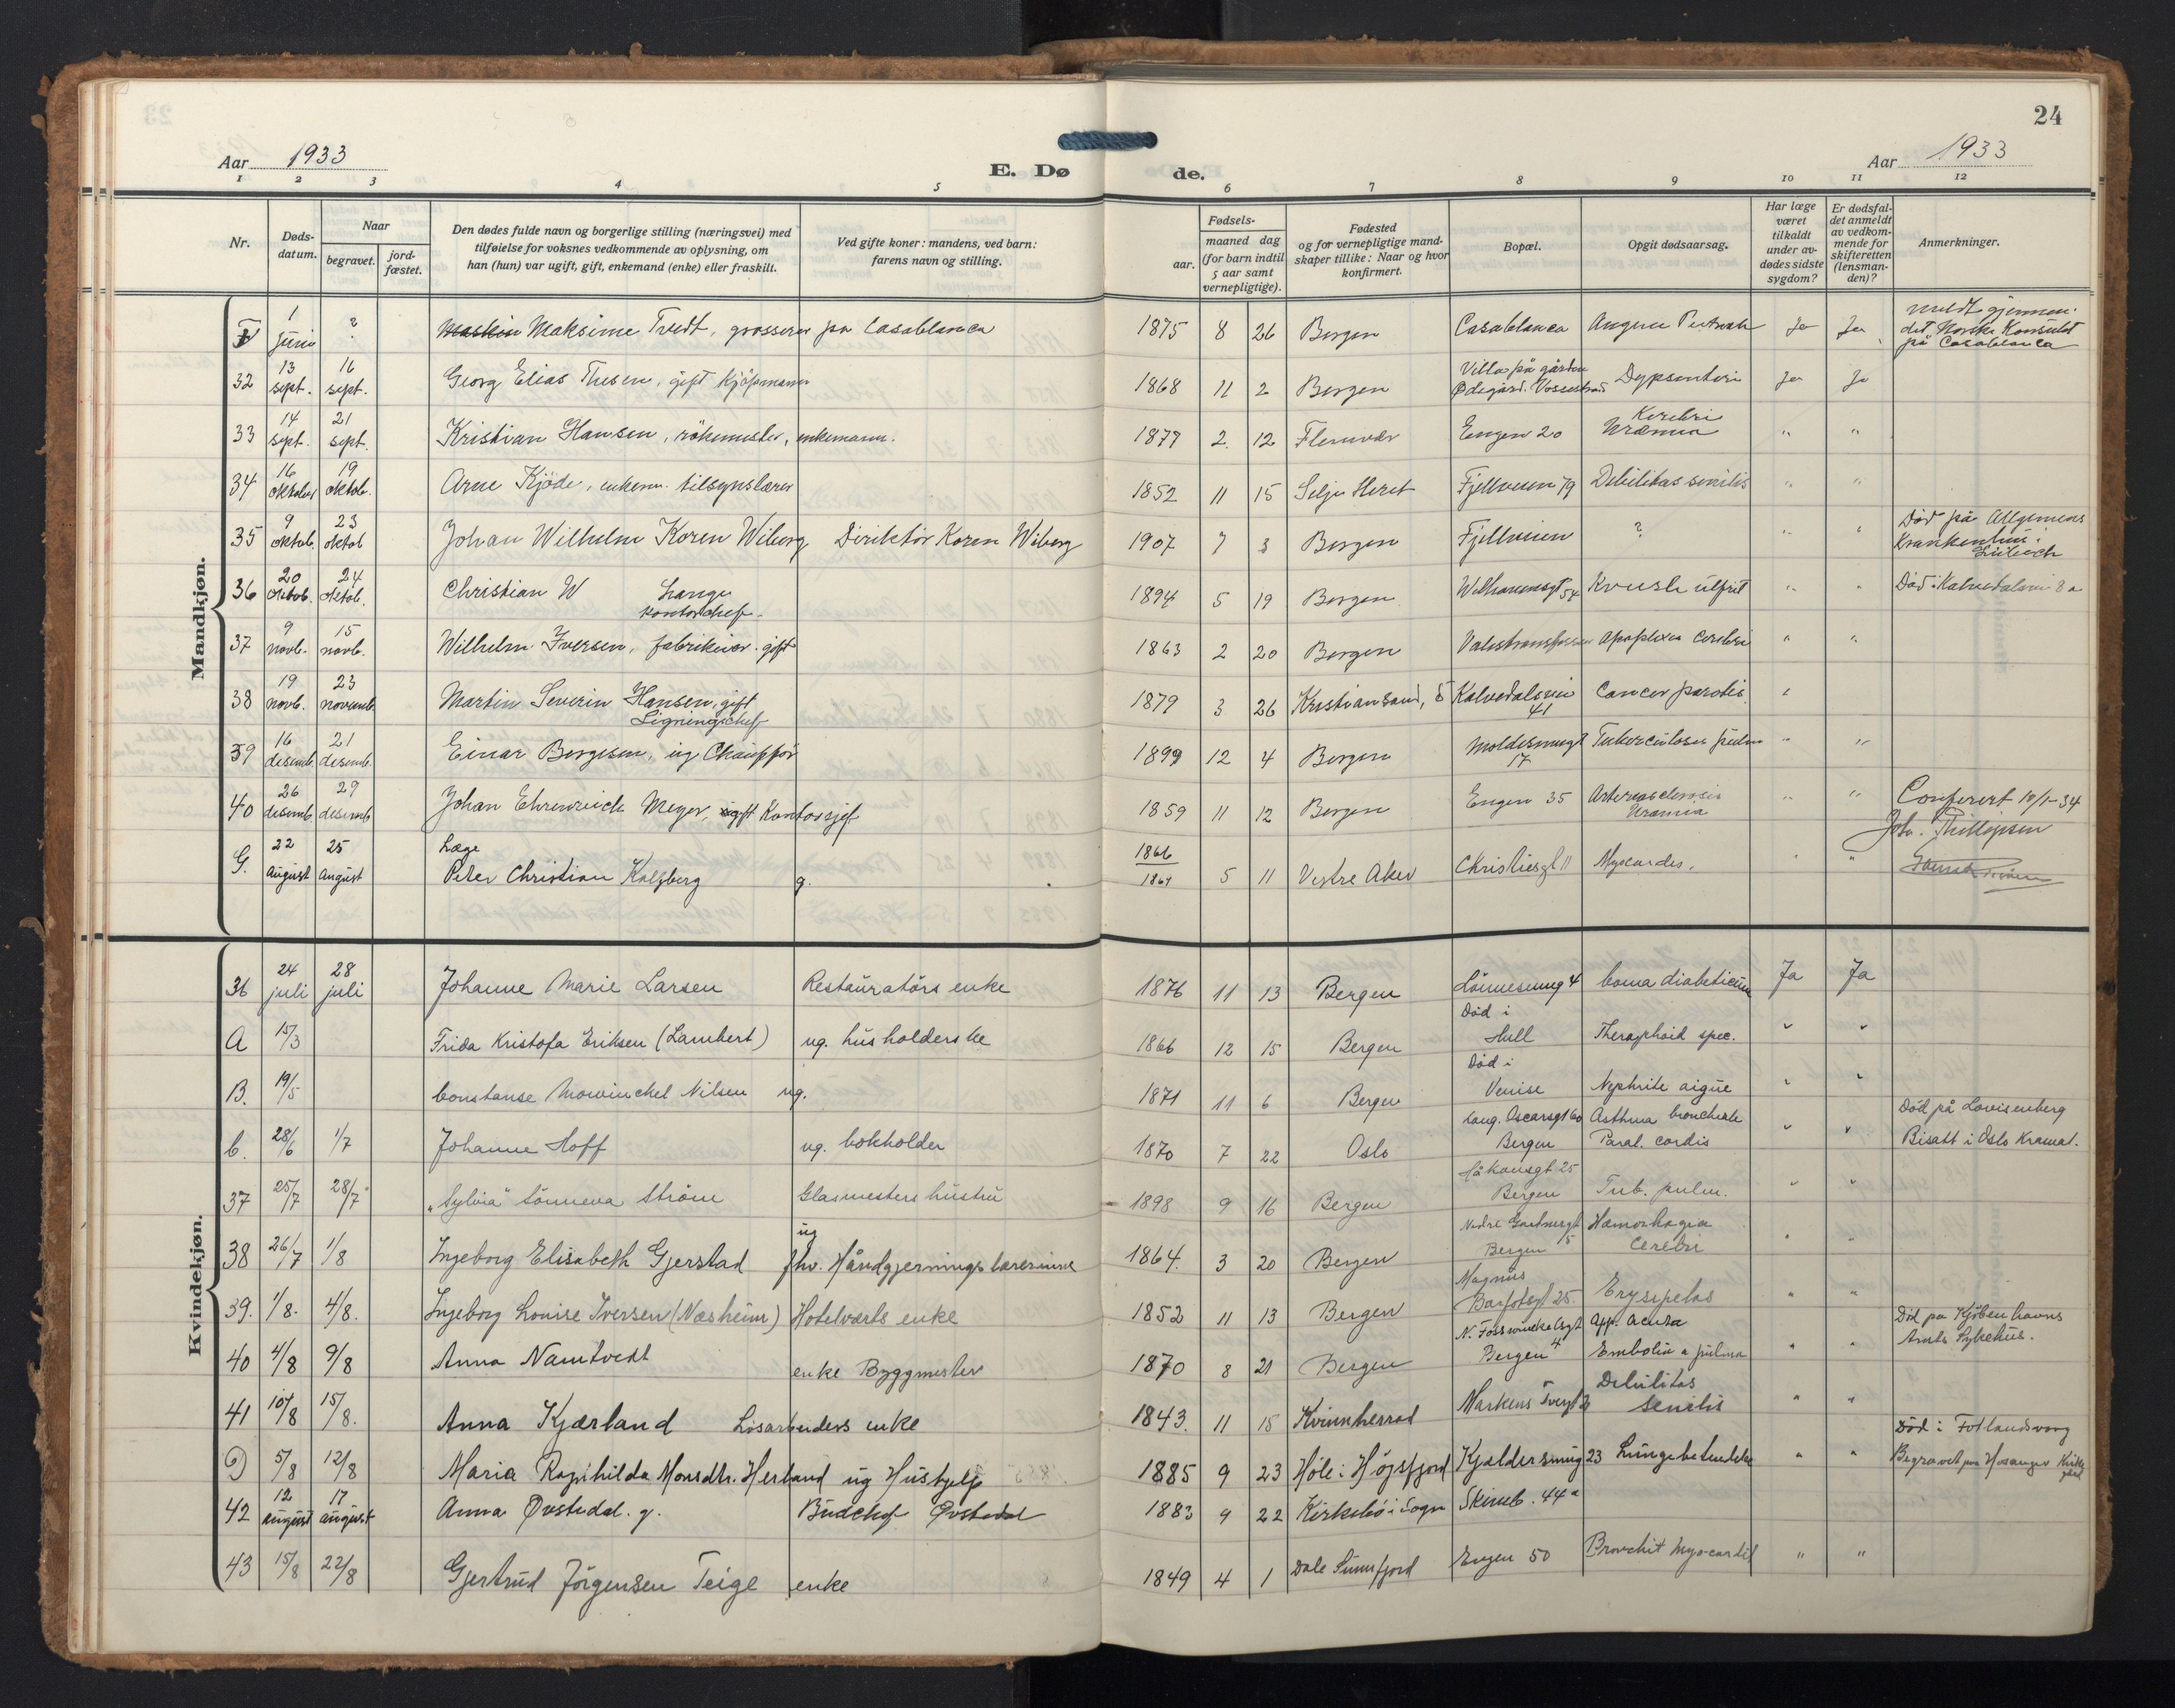 24
Aar 1933
E. Dø de.
Aar 1933
1 2 3 4 5 6 7 8 9 10 11 12
Nr.
Døds-datum.
Naar
begravet.
jord-fæstet.
Den dødes fulde navn og borgerlige stilling (næringsvei) med
tilføielse for voksnes vedkommende av oplysning, om
han (hun) var ugift, gift, enkemand (enke) eller fraskilt.
Ved gifte koner: mandens, ved barn:
farens navn og stilling.
Fødsels-
aar.
maaned dag
(for barn indtil
5 aar samt
vernepligtige).
Fødested
og for vernepligtige mand-
skaper tillike: Naar og hvor
konfirmert.
Bopæl.
Opgit dødsaarsag.
Har læge
været
tilkaldt
under av-
dødes sidste
sygdom?
Er dødsfal-
det anmeldt
av vedkom-
mende for
skifteretten
(lensman-
den)?
Anmerkninger.
Mandkjøn.
1 juni ? Maksime Tvedt, grosserer på Casablanca 1875 8 26 Bergen Casablanca Angina Ja Ja meldt gjennem det Norske Konsulat på Casablanca
32 13 sept. 16 sept. Georg Elias Thesen, gift Kjöpmann 1868 11 2 Bergen Villa på gården Ødegård. Vossestrand Dypsenteri Ja Ja
33 14 sept. 21 sept. Kristian Hansen, enkemann. 1879 2. 12 Engen 20 Uræmia " "
34 16 oktober 19 oktob. Arne Kjöde, enkem. tilsynslærer 1852 11 15 Selje Heret Fjellveien 79 Debilitas senilis " "
35 9 oktob. 23 oktob Johan Wilhelm Koren Wiberg Direktör Koren Wiberg 1907 7 3 Bergen Fjellveien ? " " Död på Allgemeines Krankenhaus i Lübeck
36 20 oktob. 24 oktob. Christian W Lange kontorchef 1894 5 19 Bergen 54 Död i Kalvedalsvei 8a
37 9 novb. 15 novb. Wilhelm Iversen, fabrikeier. gift 1863 2 20 Bergen Apoplexia Cerebri " "
38 19 novb. 23 novemb. Martin Severin Hansen, gift Ligningschef 1879 3 26 Kristiansand, S Kalvedalsvei 41 Cancer parotis "
39 16 desemb. 21 desemb. Einar Bergesen, ug Chauffør 1899 12 4 Bergen 17 Tuberculosis pulm " "
40 26 desemb. 29 desemb. Johan Ehrenreich Meyer, gift Kontorsjef 1859 11 12 Bergen Engen 35 Arteriosclerosis Uræmia " " Conferert 10/1-34
G. 22 august 25 august Læge Peter Christian g. 1866 1864 5 11 Vestre Aker Christiesgt 11 " "
Kvindekjøn.
36 24 juli 28 juli Johanne Marie Larsen Restauratörs enke 1876 11 13 Bergen 4 Coma diabeticum Ja Ja
A 15/3 Frida Kristofa Eriksen (Lambert) ug. husholderske 1866 12 15 Bergen Död i Hull spec. " "
B. 19/5 Constanse Mowinckel Nilsen ug. 1871 11 6 Bergen Död i Venise Nephrite aigue " "
C. 28/6 1/7 Johanne Hoff ug. bokholder 1870 7 22 Oslo Oscarsgt 60 Bergen Asthma bronchiale Paral. cordis " " Död på Lovisenberg Bisatt i Oslo Kramat.
37 25/7 28/7 "Sylvia" Sönneva Ström Glasmesters hustru 1898 9 16 Bergen Håkonsgt 25 Bergen Tub. pulm. " "
38 26/7 1/8 Ingeborg Elisabeth Gjerstad ug fhv. Håndgjerningslærerinne 1864. 3 20 Bergen Bergen 15 Hæmorhagia Cerebri " "
39. 1/8. 4/8. Ingeborg Louise Iversen (Næsheim) Hotelverts enke 1852 11 13 Bergen Magnus Barfotsgt 25. Erysipelas " "
40 4/8 9/8 Anna Namtvedt enke Byggmester 1870 8 21 Bergen Bergen 4 App. acuta Embolia a pulma " " Död på Kjöbenhavns Amts Sykehus.
41 10/8 15/8. Anna Kjærland Losarbeiders enke 1843. 11 15 Kvinnherrad Debilitas senilis " "
5/8 12/8 Maria Ragnhilda Monsdtr. Herland ug Hushjelp 1885 9 23 Höle i Högsfjord Kjeldersmug 23 Lungebetendelse " " Död i Fotlandsvåg Begravet på Hosanger Kirkegård
42 12 august 17 august Anna Øvstedal. g. Budchef Øvstedal 1883 9 22 Kirkebö i Sogn Skiveb. 44a
43 15/8 22/8 Gjertrud Jörgensen Teige enke 1849 4 1 Dale Sunnfjord Engen 50 Bronchit Myocardit " "